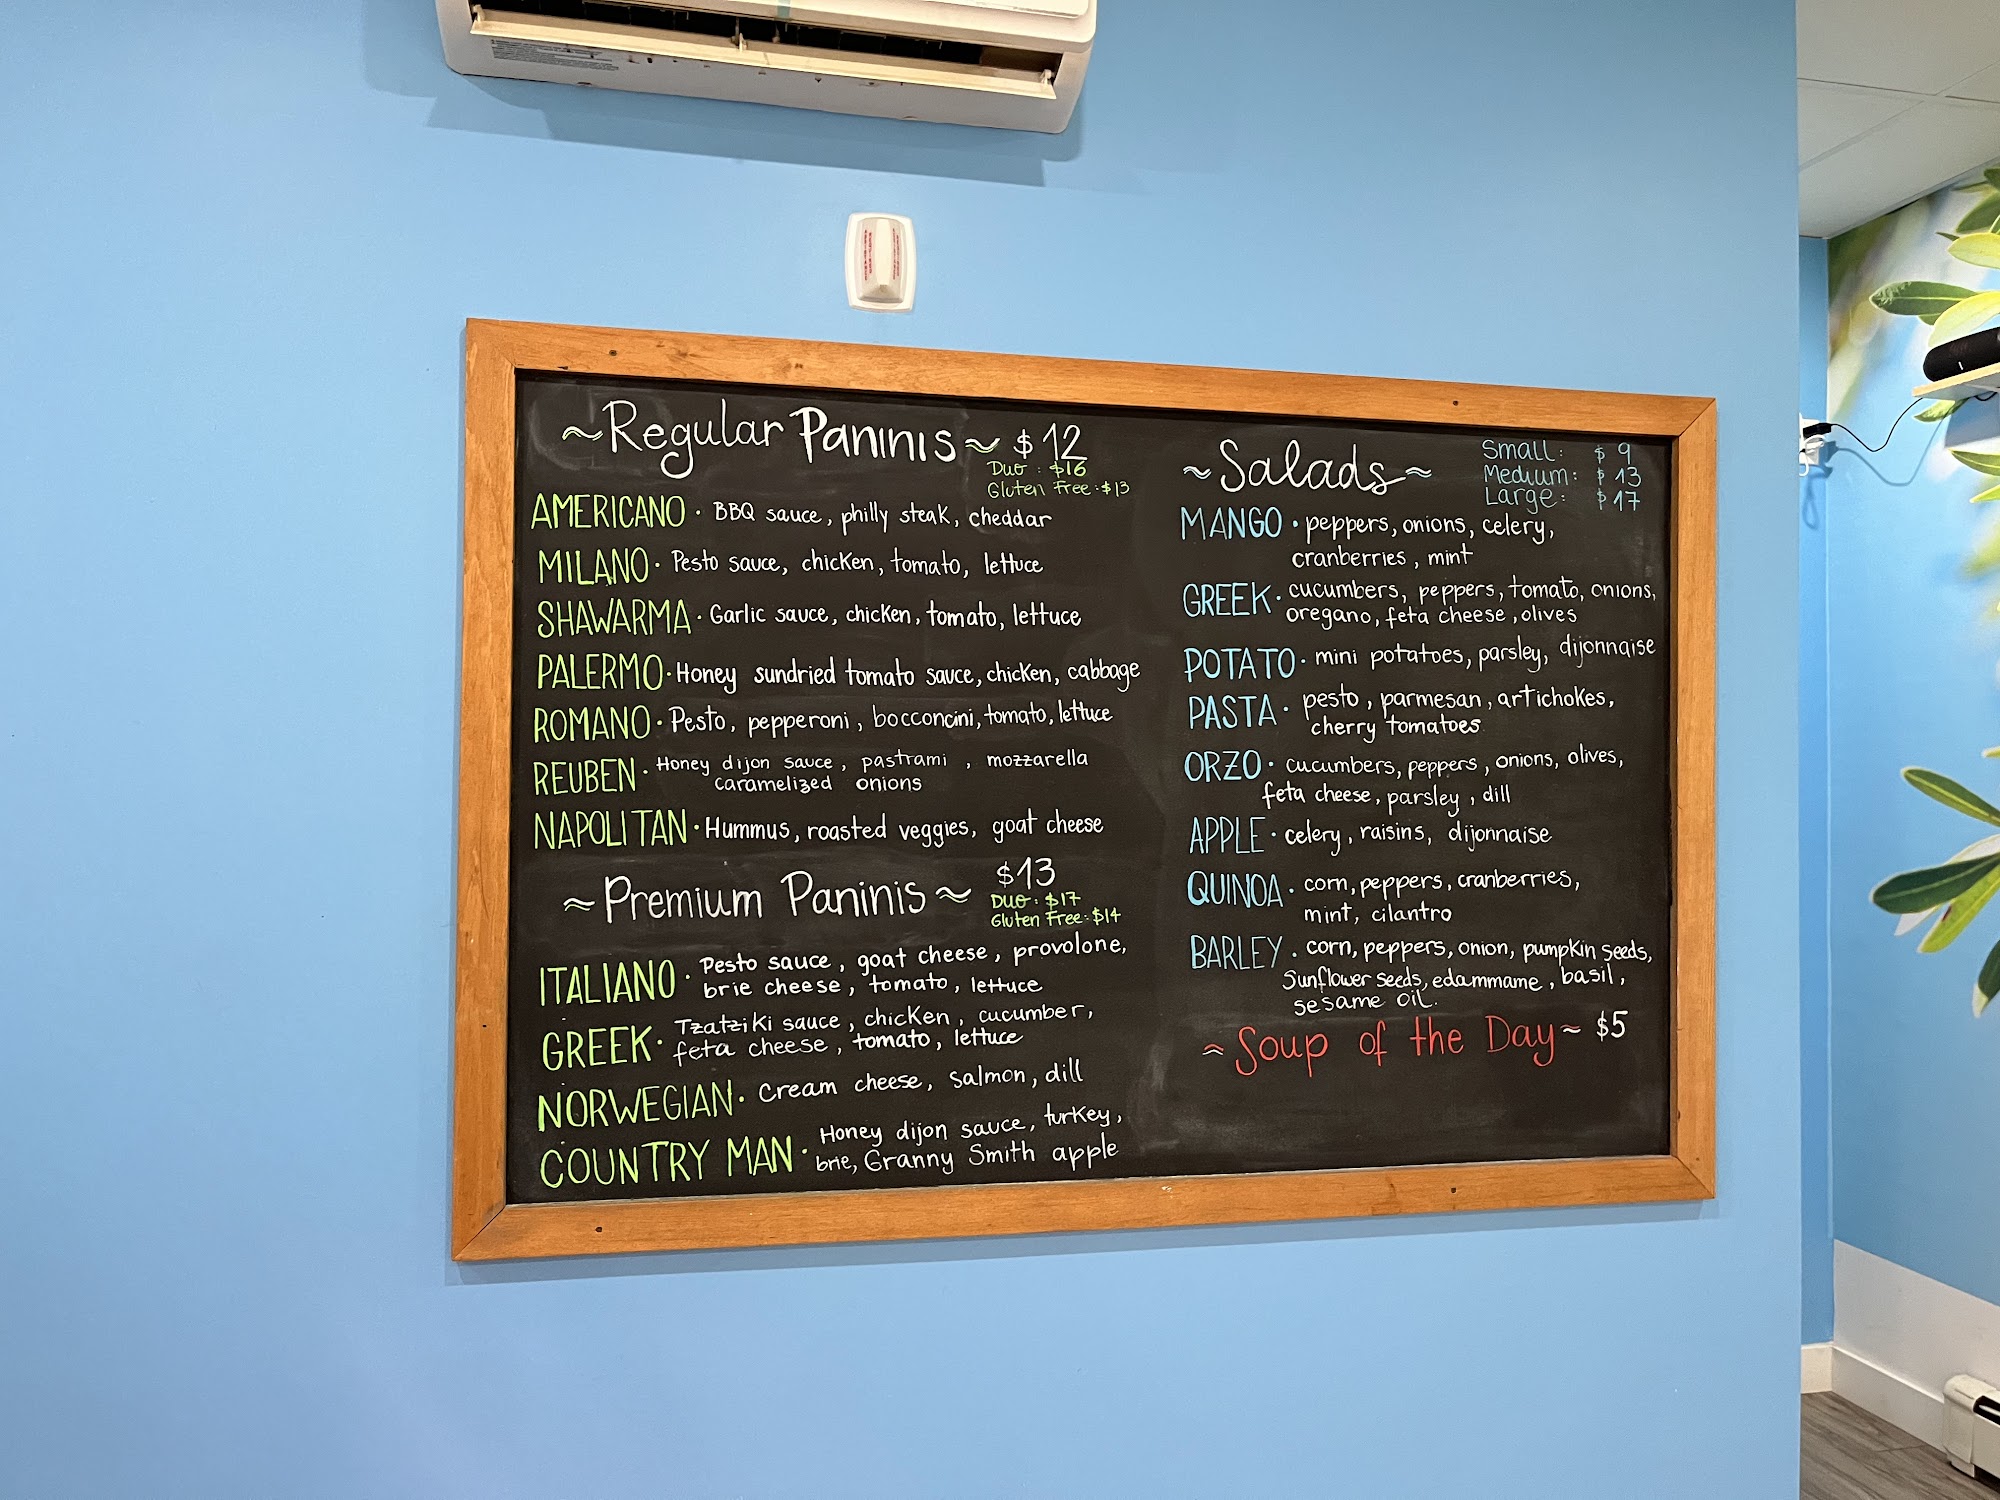 ~Regular Paninis~ $12
Duo : $16
Gluten Free : $13
AMERICANO · BBQ sauce, philly steak, cheddar
MILANO · Pesto sauce, chicken, tomato, lettuce
SHAWARMA · Garlic sauce, chicken, tomato, lettuce
PALERMO · Honey sundried tomato sauce, chicken, cabbage
ROMANO · Pesto, pepperoni, bocconcini, tomato, lettuce
REUBEN · Honey dijon sauce, pastrami, mozzarella
caramelized onions
NAPOLITAN · Hummus, roasted veggies, goat cheese
~Premium Paninis~ $13
Duo : $17
Gluten Free : $14
ITALIANO · Pesto sauce, goat cheese, provolone,
brie cheese, tomato, lettuce
GREEK · Tzatziki sauce, chicken, cucumber,
feta cheese, tomato, lettuce
NORWEGIAN · Cream cheese, salmon, dill
COUNTRY MAN · Honey dijon sauce, turkey,
brie, Granny Smith apple
~Salads~
Small: $ 9
Medium: $ 13
Large: $ 17
MANGO · peppers, onions, celery,
cranberries, mint
GREEK · cucumbers, peppers, tomato, onions,
oregano, feta cheese, olives
POTATO · mini potatoes, parsley, dijonnaise
PASTA · pesto, parmesan, artichokes,
cherry tomatoes
ORZO · cucumbers, peppers, onions, olives,
feta cheese, parsley, dill
APPLE · celery, raisins, dijonnaise
QUINOA · corn, peppers, cranberries,
mint, cilantro
BARLEY · corn, peppers, onion, pumpkin seeds,
Sunflower seeds, edammame, basil,
sesame oil.
~Soup of the Day~ $5